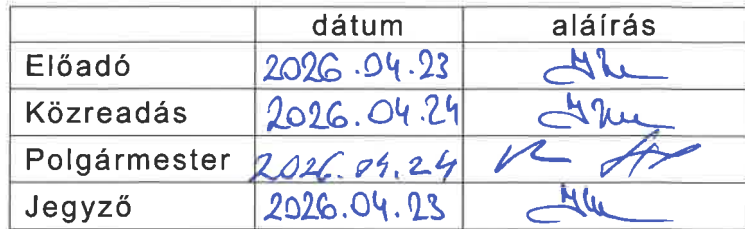 dátum aláírás
Előadó 2026.04.23
Közreadás 2026.04.24
Polgármester 2026.04.24
Jegyző 2026.04.23